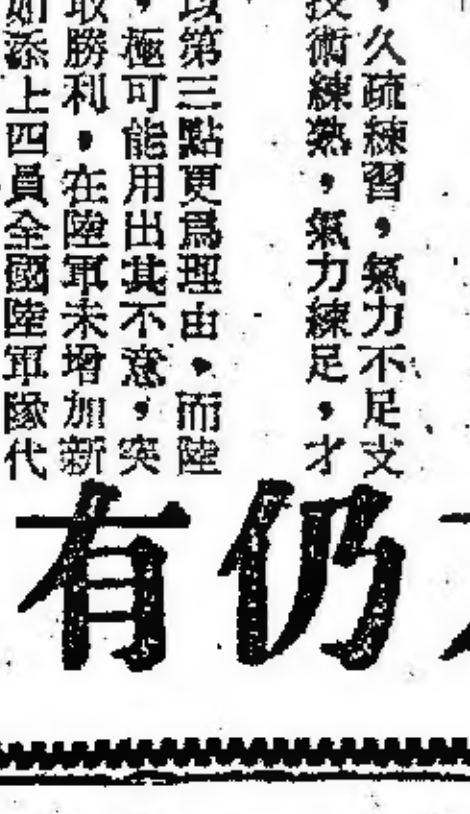 ，久疏練習，氣力不足支
技術練熟，氣力練足，才
第三點更爲理由，而陸
，極可能用出其不意，突
取勝利，在陸軍未增加新
如添上四員全國陸軍隊代
仍有